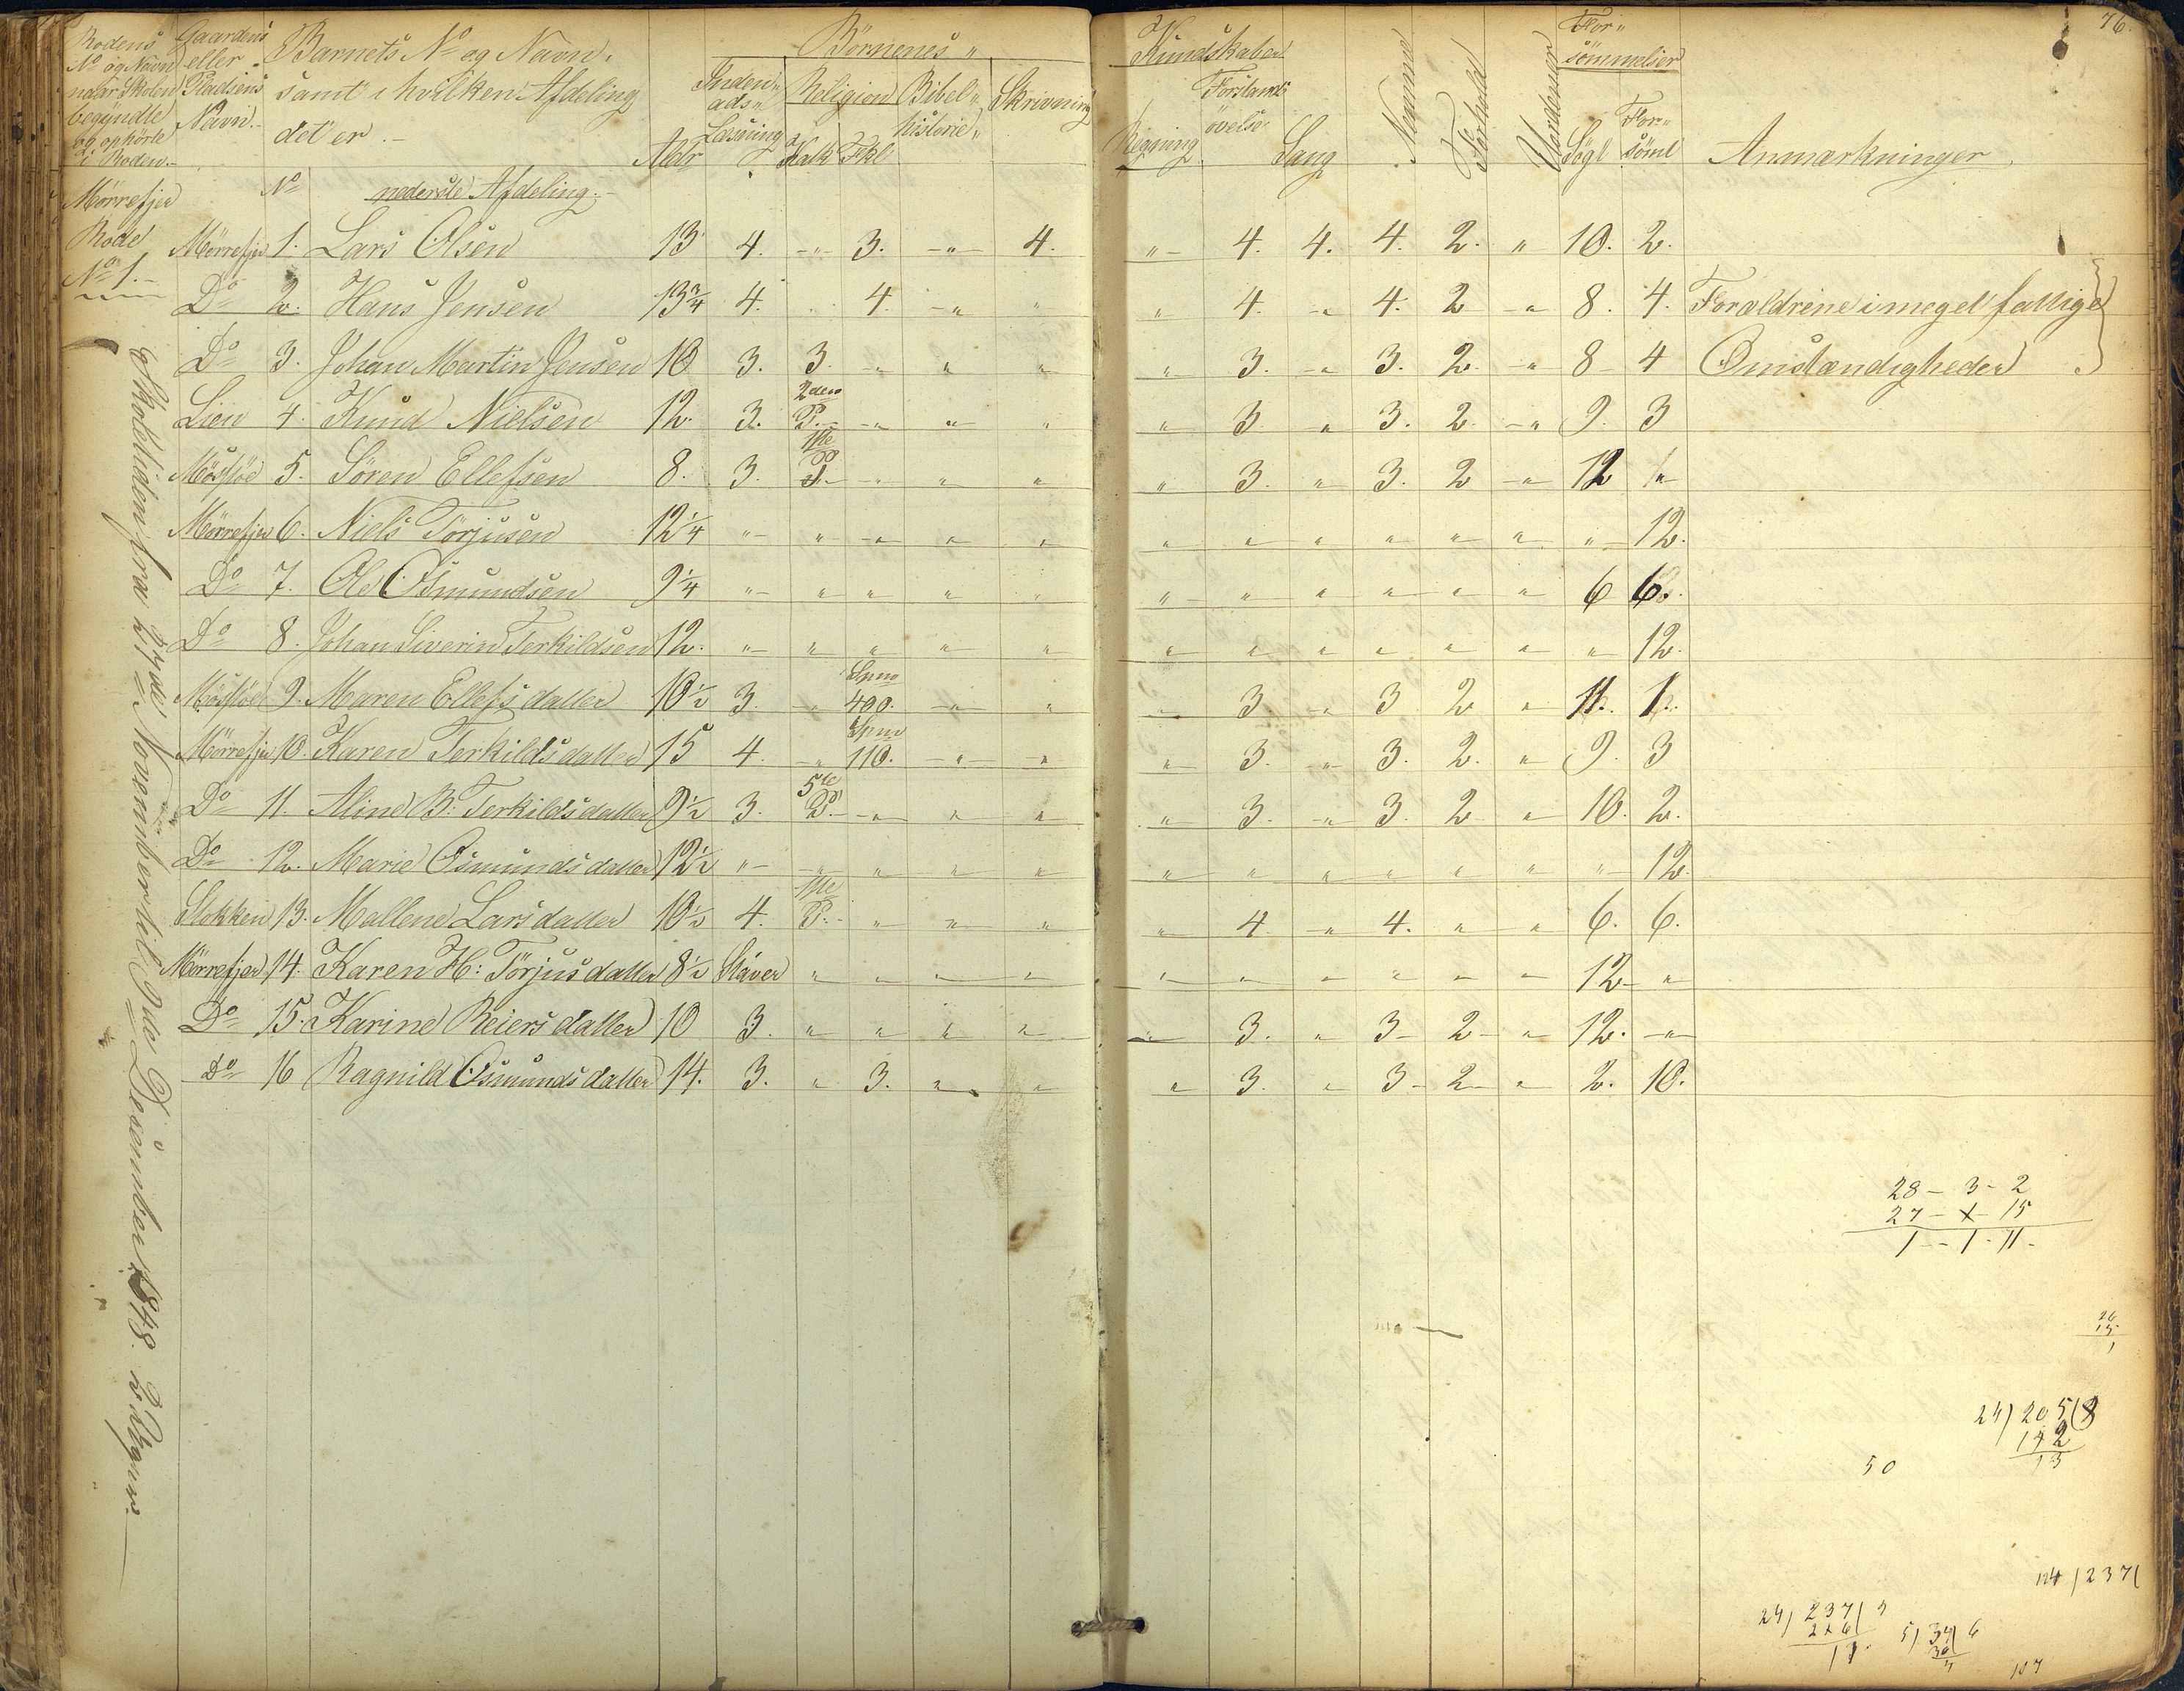 76.
Rodens Gaardens Barnets No og Navn, Börnenes " Kundskaber For"
No og Navn eller sömmelser
naar Skolen Pladsens samt i hvilken Afdeling Inden" Religion Bibel" Skrivning Forstands
begyndte Navn. ads" historie" övelse
og ophörte det er. Alder Læsning Katk Fkl Regning Sang Nemme Forhold Vandenser Sögt For" sömt Anmærkninger
i Roden.
Mörrefjer No nederste Afdeling.
Rode Mörrefjer 1. Lars Olsen 13 4. " 3. " 4. " 4. 4. 4. 2. " 10. 2.
No 1.
Do 2. Hans Jensen 13 3/4 4. 4. " " " 4. " 4. 2 " 8. 4. Forældrene i meget fattige
Do 3. Johan Martin Jensen 10 3. 3. " " " " 3. " 3. 2. " 8 4 Omstændigheder
Lien 4. Knud Nielsen 12. 3. 2den P. " " " " 3 " 3. 2. " 9. 3
5. Sören Ellefsen 8. 3. 1ste P. " " " " 3. " 3. 2 " 12 "
Mörrefjer 6. Niels Törjusen 12 1/4 " " " " " " " " " " " " 12.
Do 7. Ole Osmundsen 9 1/4 " " " " " " " " " " " 6 6.
Do 8. Johan Siverin Terkildsen 12. " " " " " " " " " " " " 12.
9. Maren Ellefsdatter 10 1/2 3. " Spm 400. " " " 3. " 3 2 " 11. 1.
Mörrefjer 10. Karen Terkildsdatter 15 4. " Spm 110. " " " 3. " 3. 2. " 9. 3
Do 11. Aline B. Terkildsdatter 9 1/2 3. 5te P. " " " " 3. " 3. 2 " 10. 2.
Do 12. Marie Osmundsdatter 12 1/2 " " " " " " " " " " " " 12
Stokken 13. Mallene Larsdatter 10 1/2 4. 1ste P. " " " " 4. " 4. " " 6. 6.
Mörrefjer 14. Karen H: Törjusdatter 8 1/2 Staver " " " " " " " " " " 12 "
Do 15. Karine Reiersdatter 10 3. " " " " " 3. " 3 2 " 12. "
Do 16 Ragnild Osmundsdatter 14. 3. " 3. " " " 3. " 3 2 " 2. 10.
Skoletiden fra 27de November til 9de Desember 1848.
28 - 3 - 2
27 - 1 - 15
1 - 1 - 11 -
24) 205 (8
192
13
50
24) 237(
5) 34( 6
30
4
107